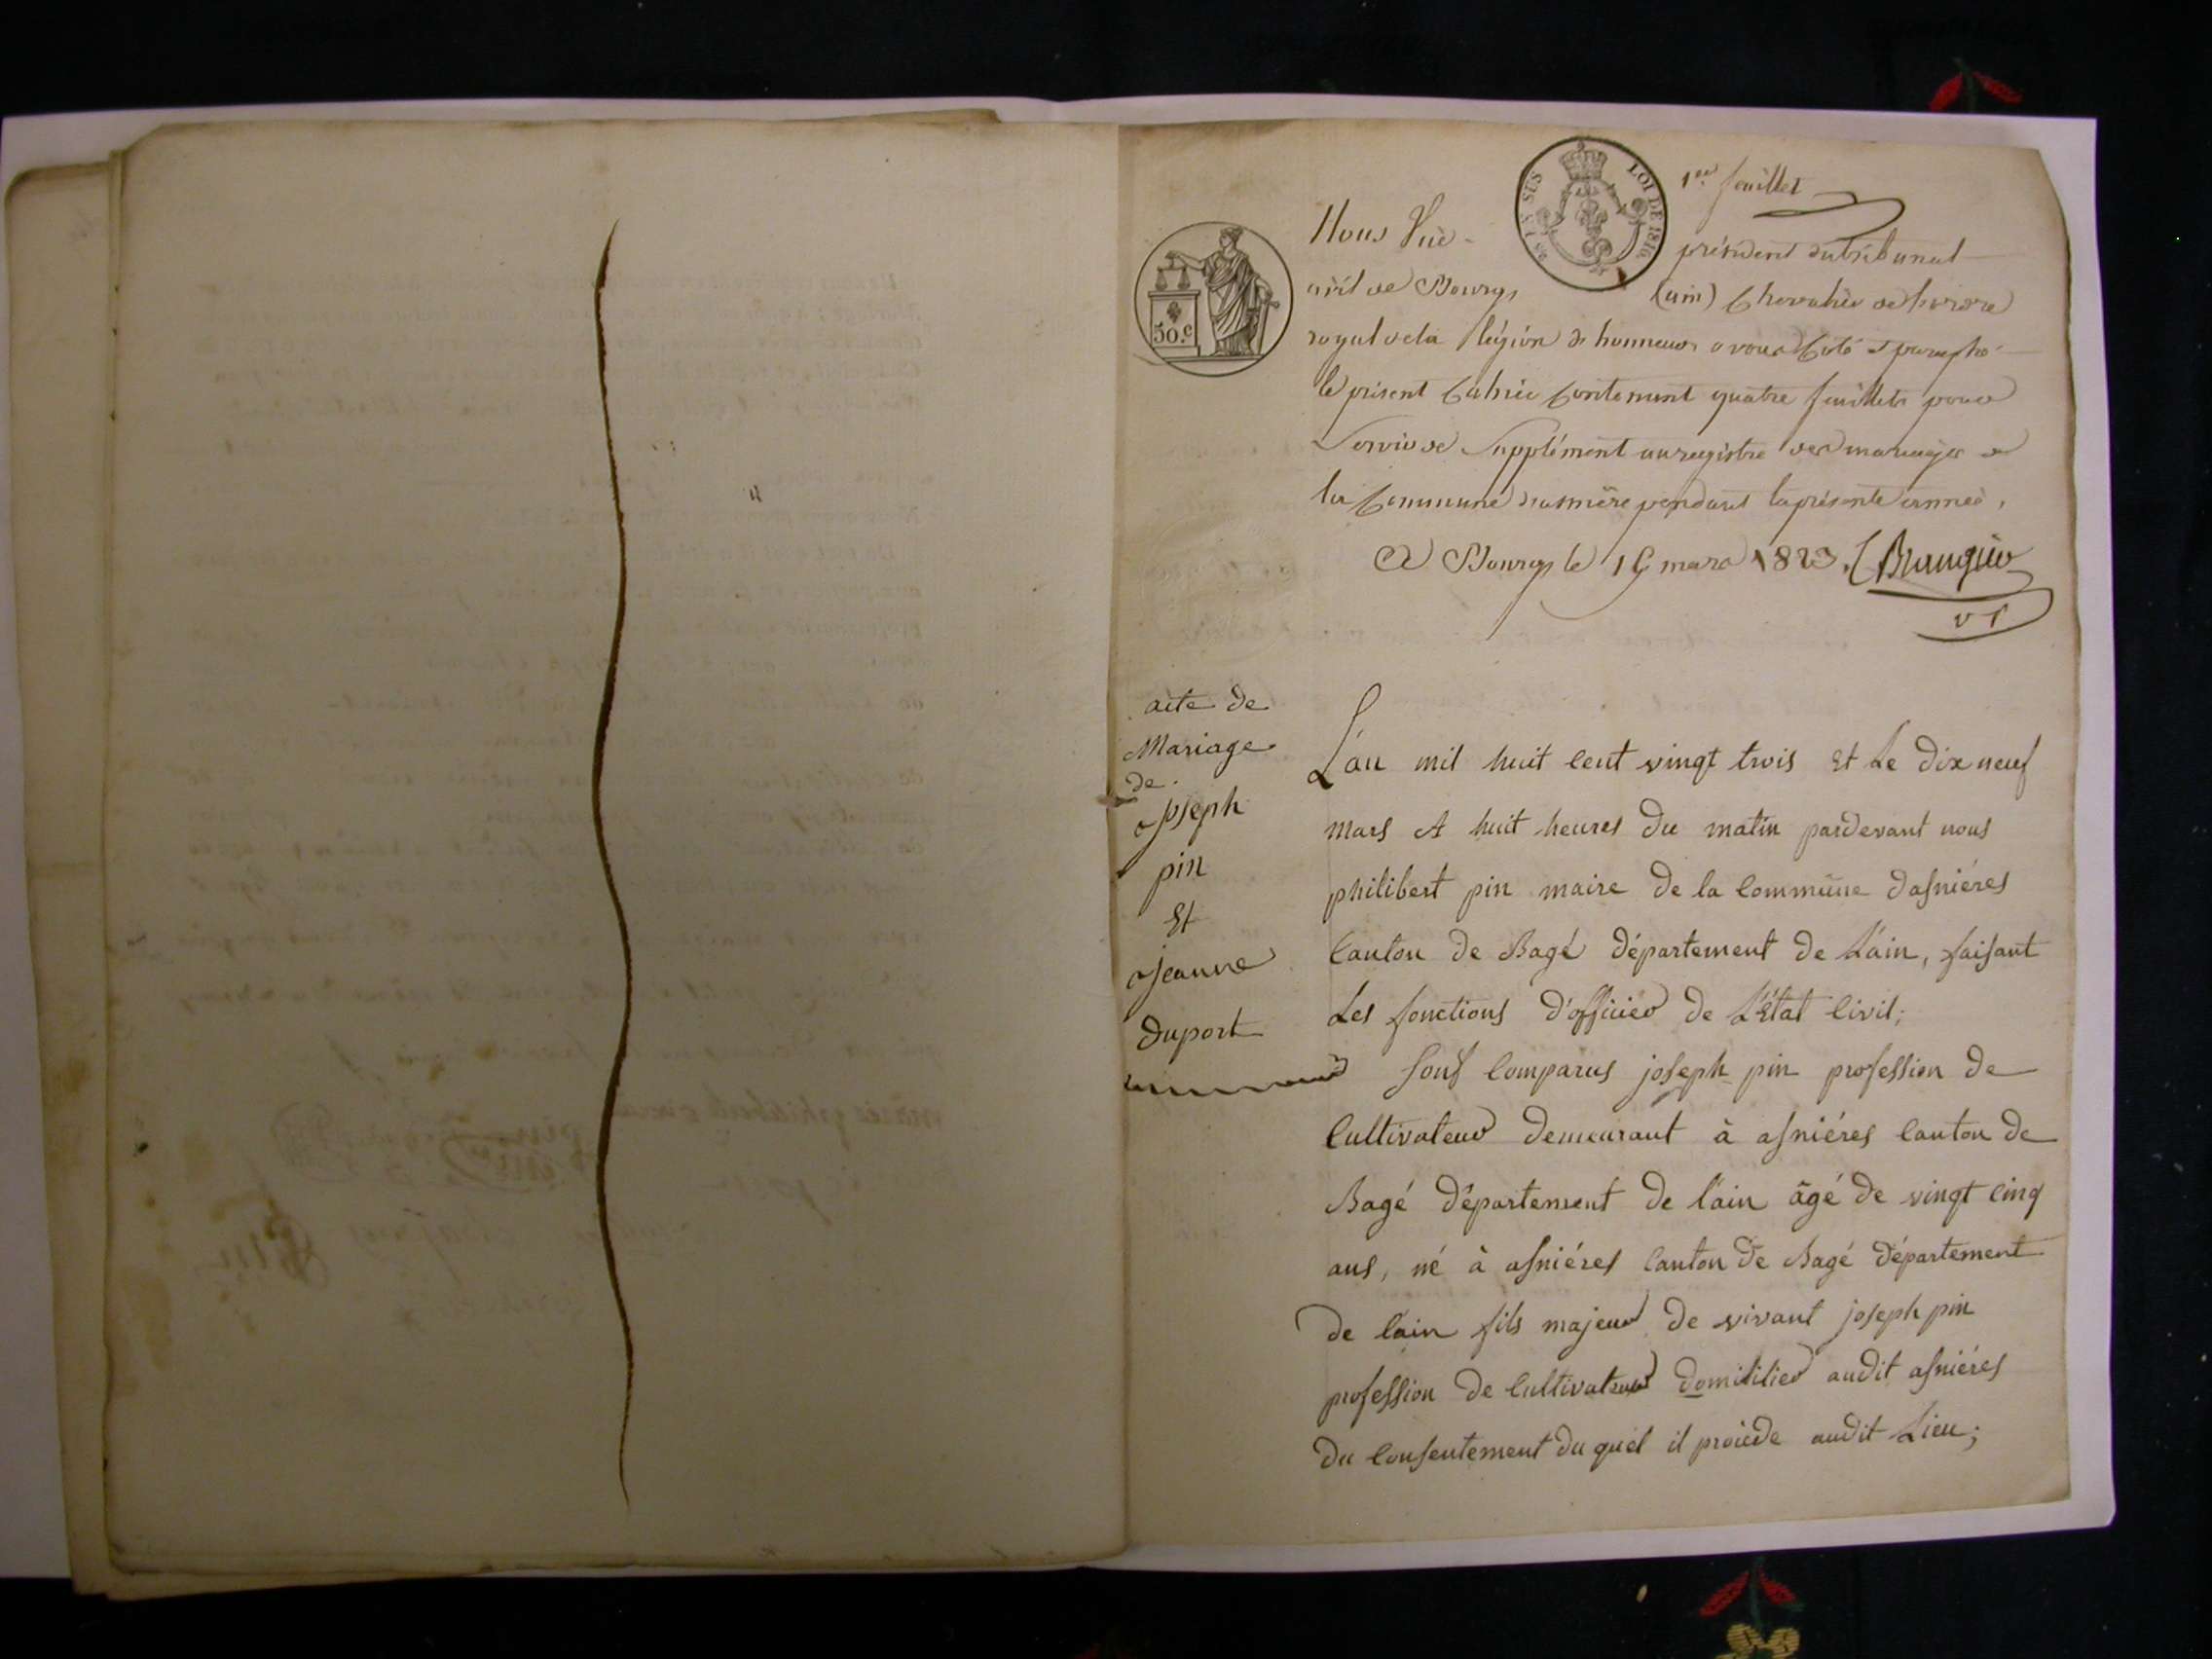 1er feuillet
LOI DE 1816
50.c
Nous Vice- président du tribunal
civil de Bourg, (ain) Chevalier de l'ordre
royal de la légion d'honneur avons Coté et paraphé
le présent Cahier Contenant quatre feuillets pour
Servir de Supplément au registre des mariages de
la Commune d'asnière pendant la présente année,
A Bourg le 15 mars 1823.
acte de
Mariage
de
joseph
pin
Et
jeanne
duport
L'an mil huit cent vingt trois Et Le dix neuf
mars A huit heures du matin pardevant nous
philibert pin maire de la Commune d'asniéres
Canton de Bagé département de L'ain, faisant
Les fonctions d'officier de L'État Civil;
Sont Comparus joseph pin profession de
Cultivateur demeurant à asniéres Canton de
Bagé département de l'ain âgé de vingt cinq
ans, né à asniéres Canton de Bagé département
de l'ain fils majeur de vivant joseph pin
profession de Cultivateur domicilier audit asniéres
du Consentement du quel il procède audit Lieu;